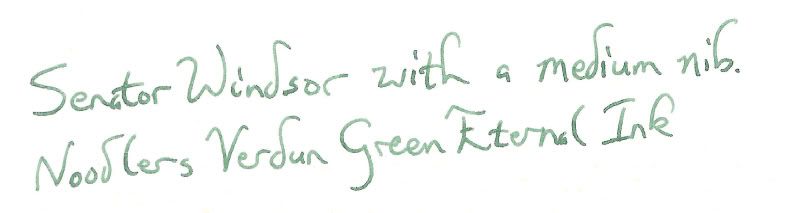 Senator Windsor with a medium nib.
Noodlers Verdun Green Eternal Ink